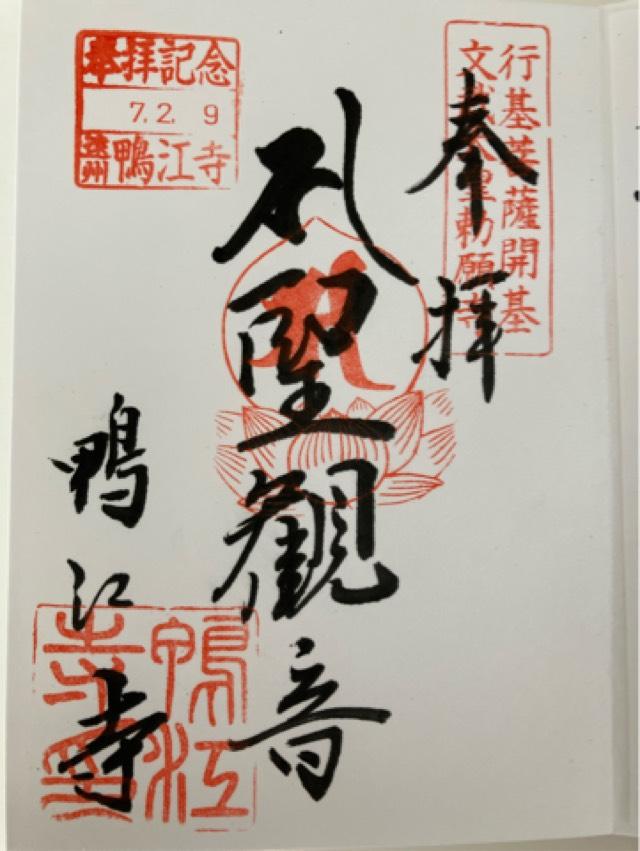 行基菩薩開基
文武天皇勅願寺
奉拝
札聖観音
奉拝記念
7.2.9
遠州鴨江寺
鴨江寺
鴨江
寺印